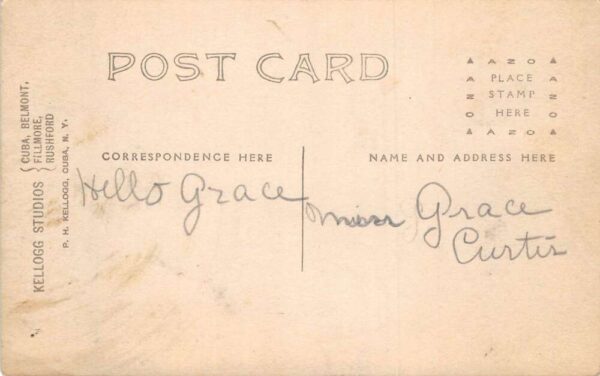 POST CARD
▲ A Z O ▲
PLACE
STAMP
HERE
▲ A Z O ▲
A Z O
A Z O
KELLOGG STUDIOS { CUBA, BELMONT,
FILLMORE,
RUSHFORD
P. H. KELLOGG, CUBA, N. Y.
CORRESPONDENCE HERE
NAME AND ADDRESS HERE
Hello Grace
Miss Grace
Curtis